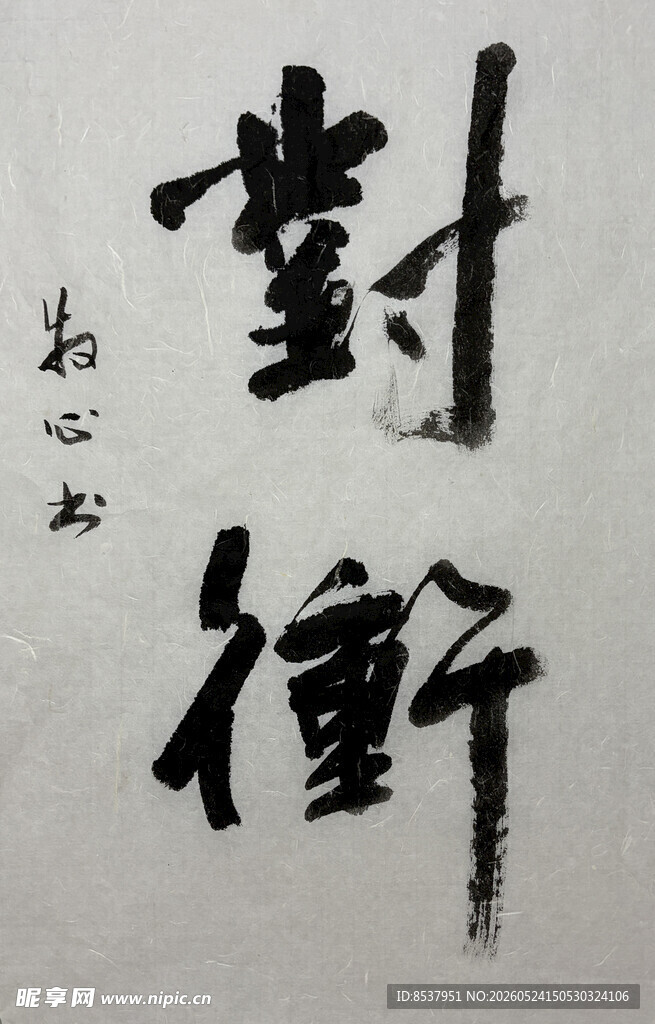 對衝
牧心书
昵享网 www.nipic.cn
ID:8537951 NO:20260524150530324106